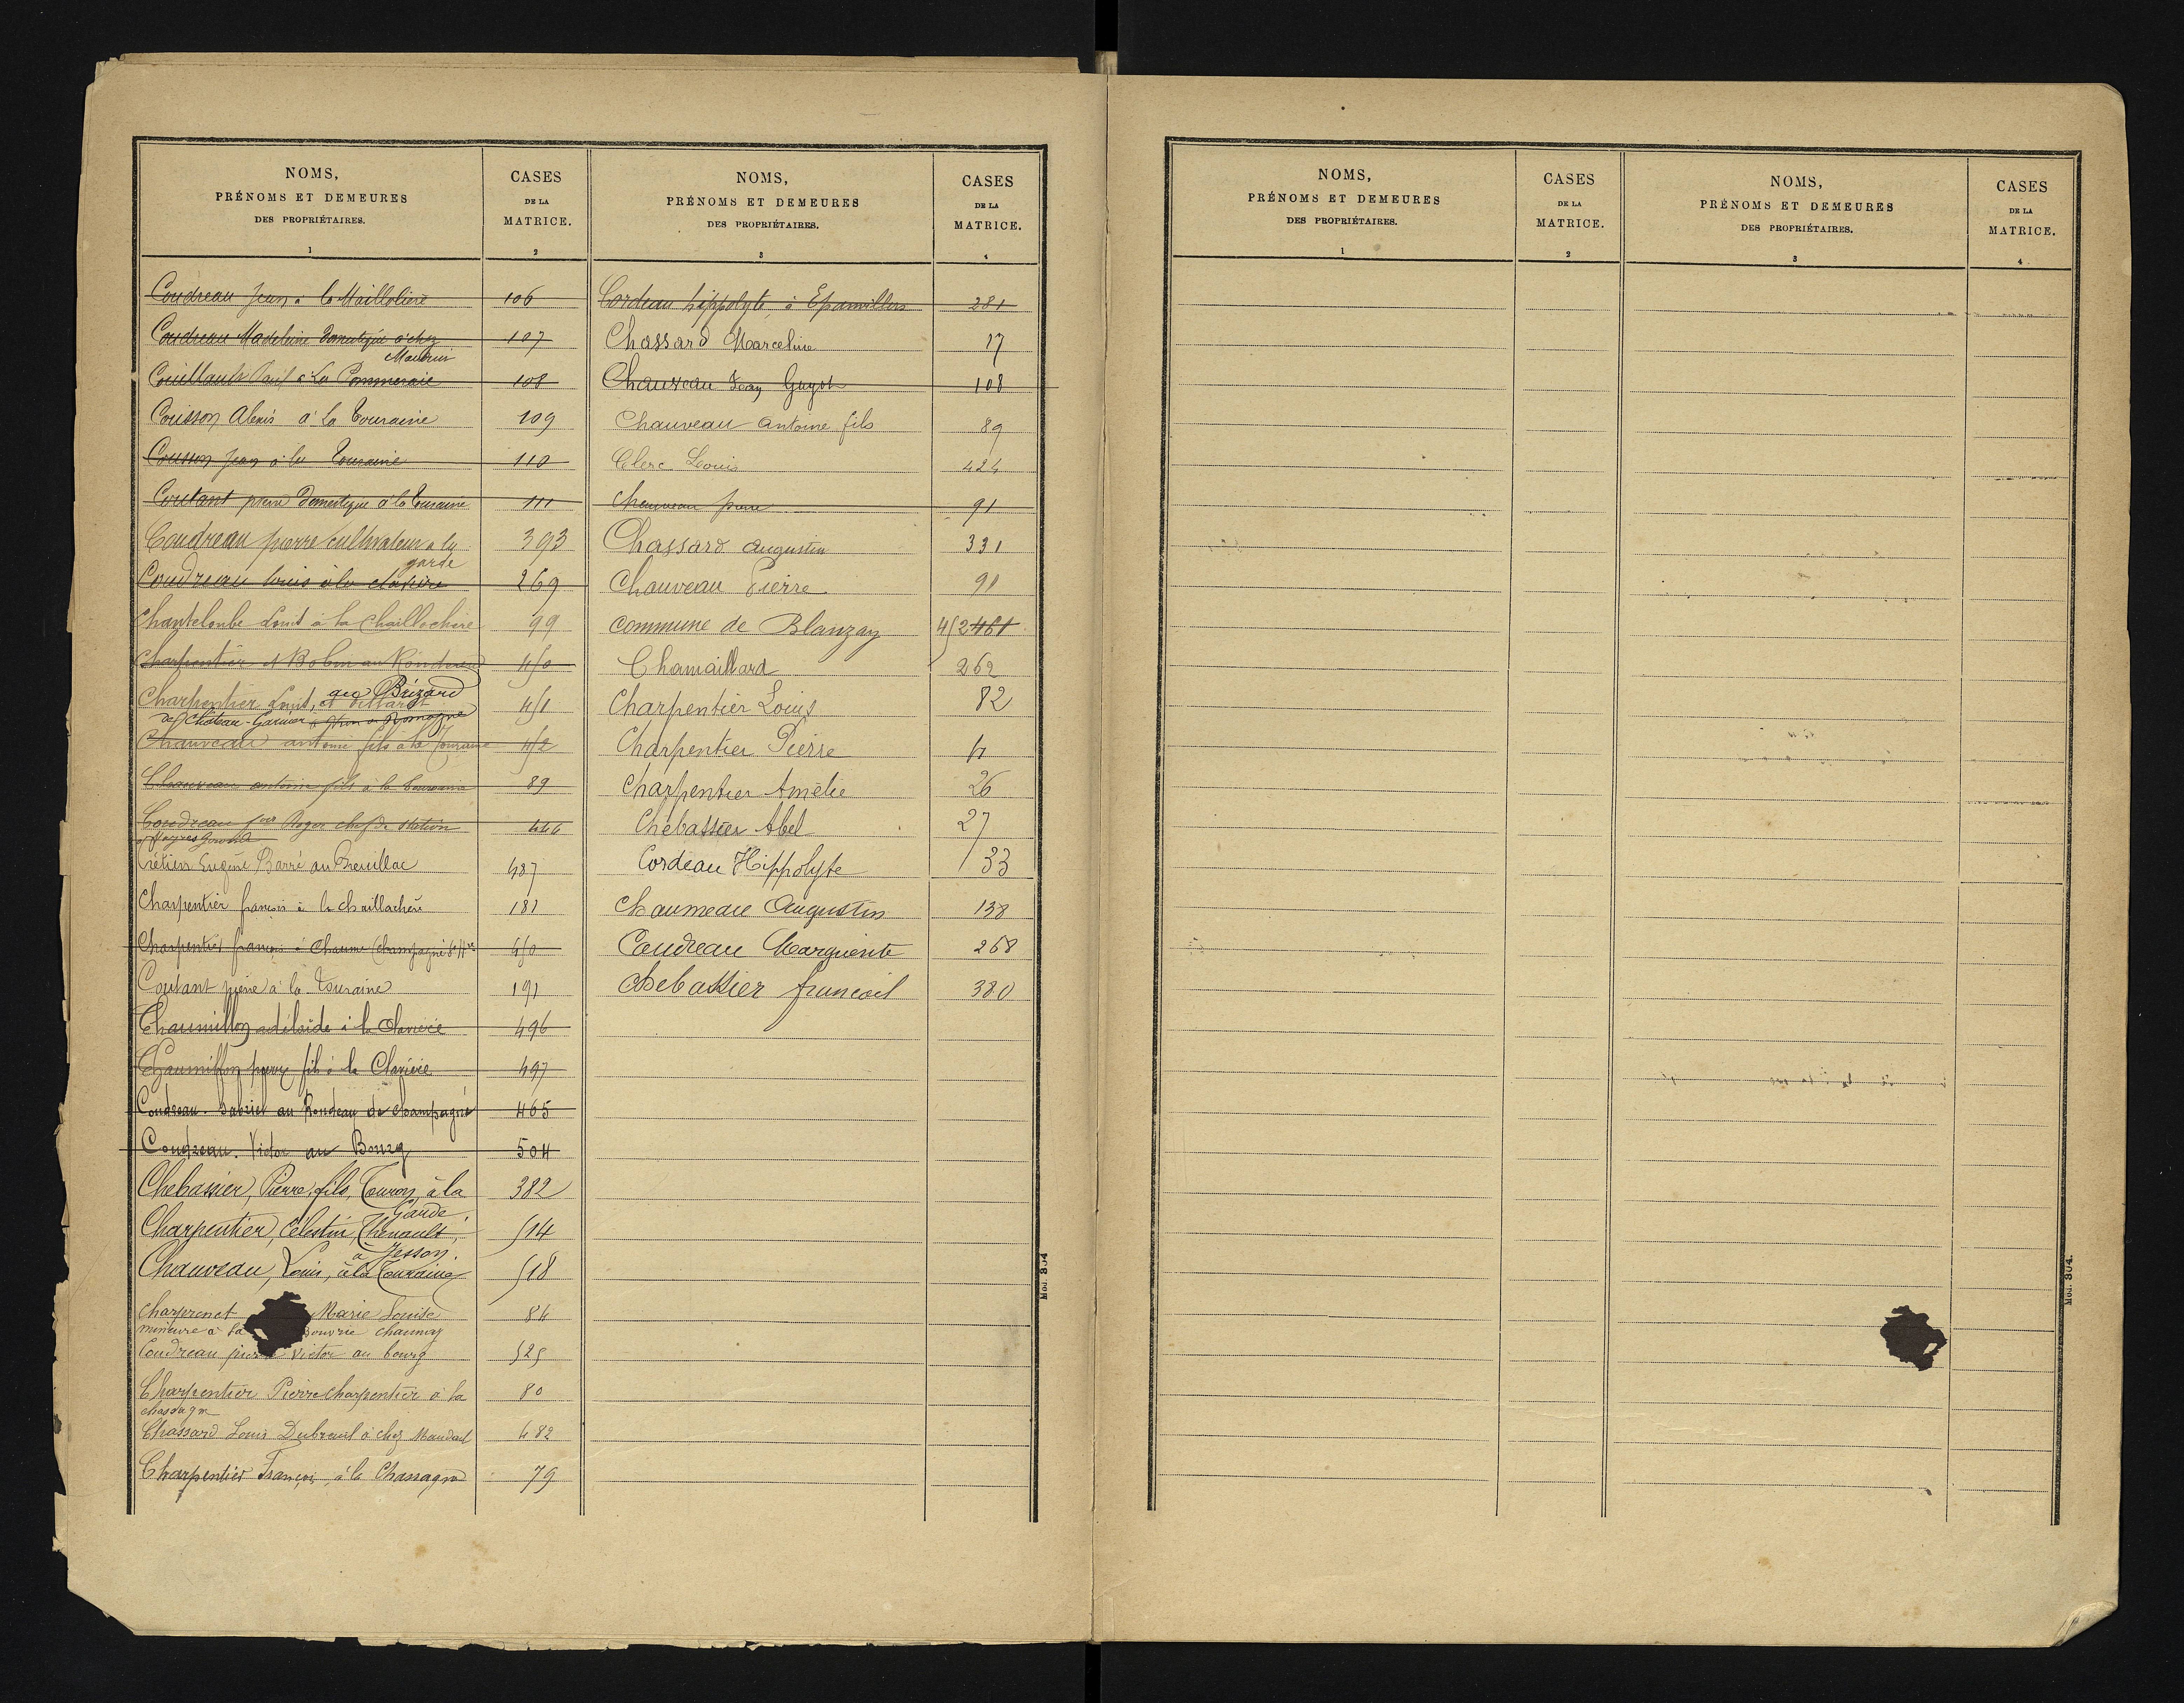 NOMS,
PRÉNOMS ET DEMEURES
DES PROPRIÉTAIRES.
1
CASES
DE LA
MATRICE.
2
Coudreau Jean à la Maillolière 106
Coudreau Madeleine Domestique à chez 107
Couillault Paul à La Pommeraie 108
Cousson Alexis à La Touraine 109
Cousson Jean à la Touraine 110
Coutant pierre Domestique à la Touraine 111
Coudreau pierre cultivateur à la 393
garde
Coudreau louis à la clavière 269
Chanteloube Louis à la Chaillochère 99
Charpentier et Robin au Rondeau 450
Charpentier Louis, 451
de Château-Garnier
Chauveau antoine fils à la Touraine 452
Chauveau antoine fils à la Touraine 89
Coudreau Roger chef de station 446
Crétien Eugène Barré au Breuillac 487
Charpentier françois à la chaillochère 181
Charpentier françois à Chaume (Champagné St Hre 450
Coutant pierre à la Touraine 191
Chaumillon adélaïde à la Clavière 496
Chaumillon pierre fils à la Clavière 497
Coudreau Gabriel au Rondeau de champagné 465
Coudreau. Victor au Bourg 504
Chebassier, Pierre, fils, Touron, à la 382
Garde
Charpentier, Célestin, Thenault, 514
à Jesson.
Chauveau, Louis, à la Touraine 518
Charprenet Marie Louise 84
mineure à la chaunay
Coudreau pierre victor au bourg 525
Charpentier Pierre charpentier à la 80
chassagne
Chassard Louis Dubreuil à chez Mauduit 482
Charpentier François, à la Chassagne 79
NOMS,
PRÉNOMS ET DEMEURES
DES PROPRIÉTAIRES.
3
CASES
DE LA
MATRICE.
4
Cordeau hippolyte, à Epanvilliers 281
Chassard Marceline 17
Chauveau Jean Guyot 108
Chauveau Antoine fils 89
Clerc Louis 424
Chauveau pierre 91
Chassard augustin 331
Chauveau Pierre 91
Commune de Blanzay 452 461
Chamaillard 262
Charpentier Louis 82
Charpentier Pierre
Charpentier Amélie 26
Chebassier Abel 27
Cordeau Hippolyte 33
Chaumeau Augustin 138
Coudreau Marguerite 268
Chebassier francois 380
Mod. 304
NOMS,
PRÉNOMS ET DEMEURES
DES PROPRIÉTAIRES.
1
CASES
DE LA
MATRICE.
2
NOMS,
PRÉNOMS ET DEMEURES
DES PROPRIÉTAIRES.
3
CASES
DE LA
MATRICE.
4
Mod. 304.